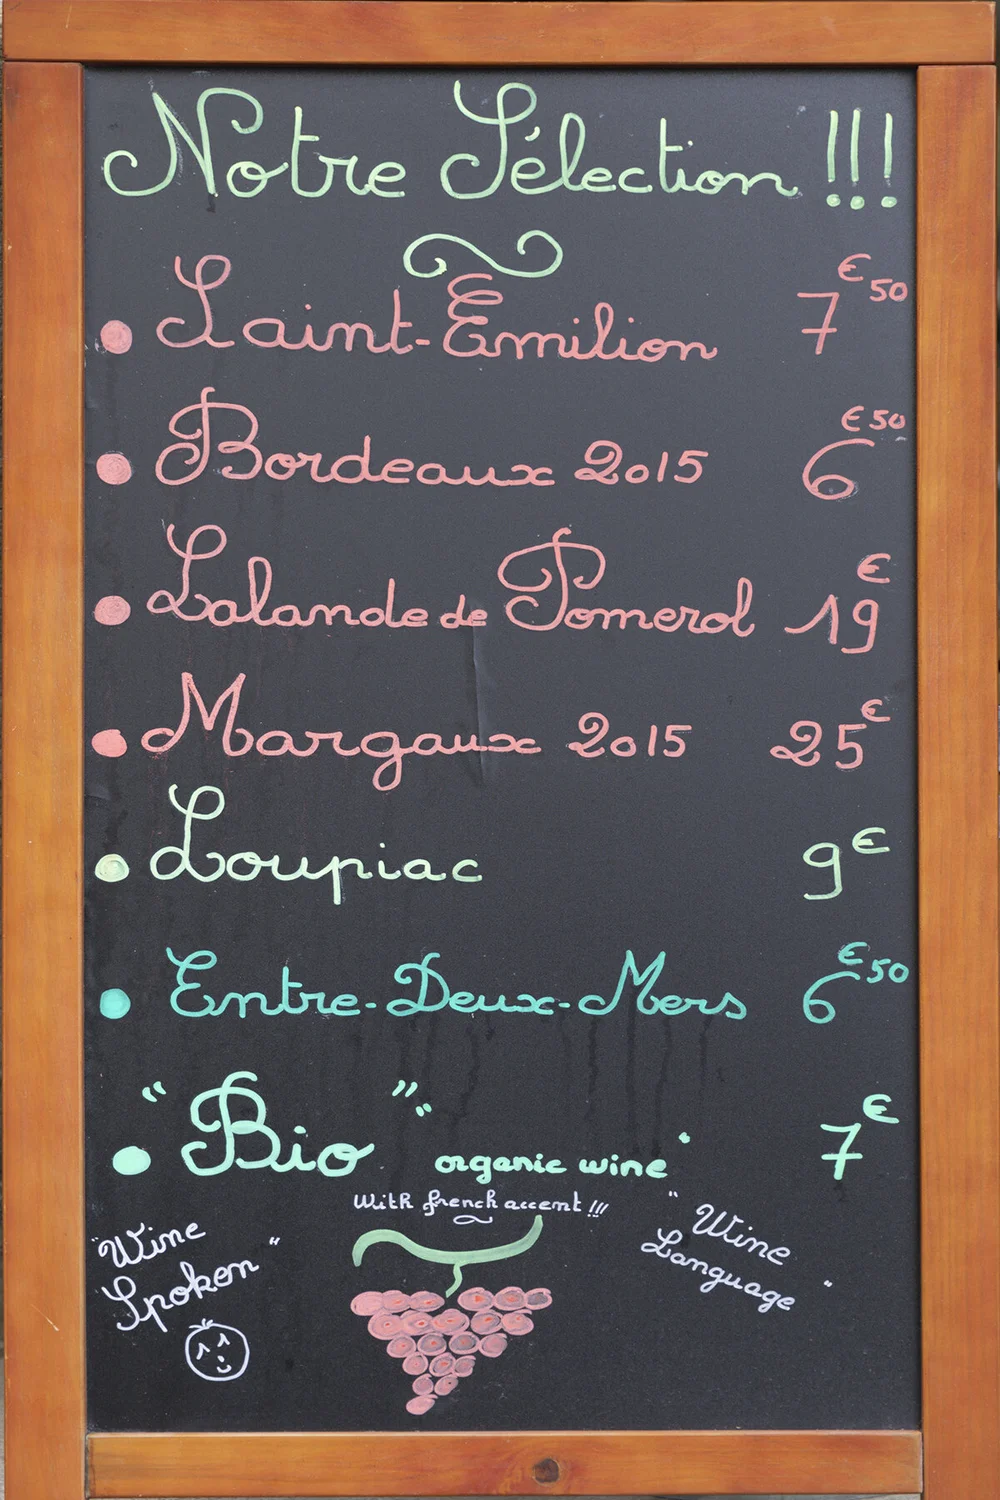 Notre Sélection !!!
Saint-Emilion 7€50
Bordeaux 2015 6€50
Lalande de Pomerol 19€
Margaux 2015 25€
Loupiac 9€
Entre-Deux-Mers 6€50
"Bio": organic wine" 7€
With french accent !!!
"Wine
Spoken"
"Wine
Language"